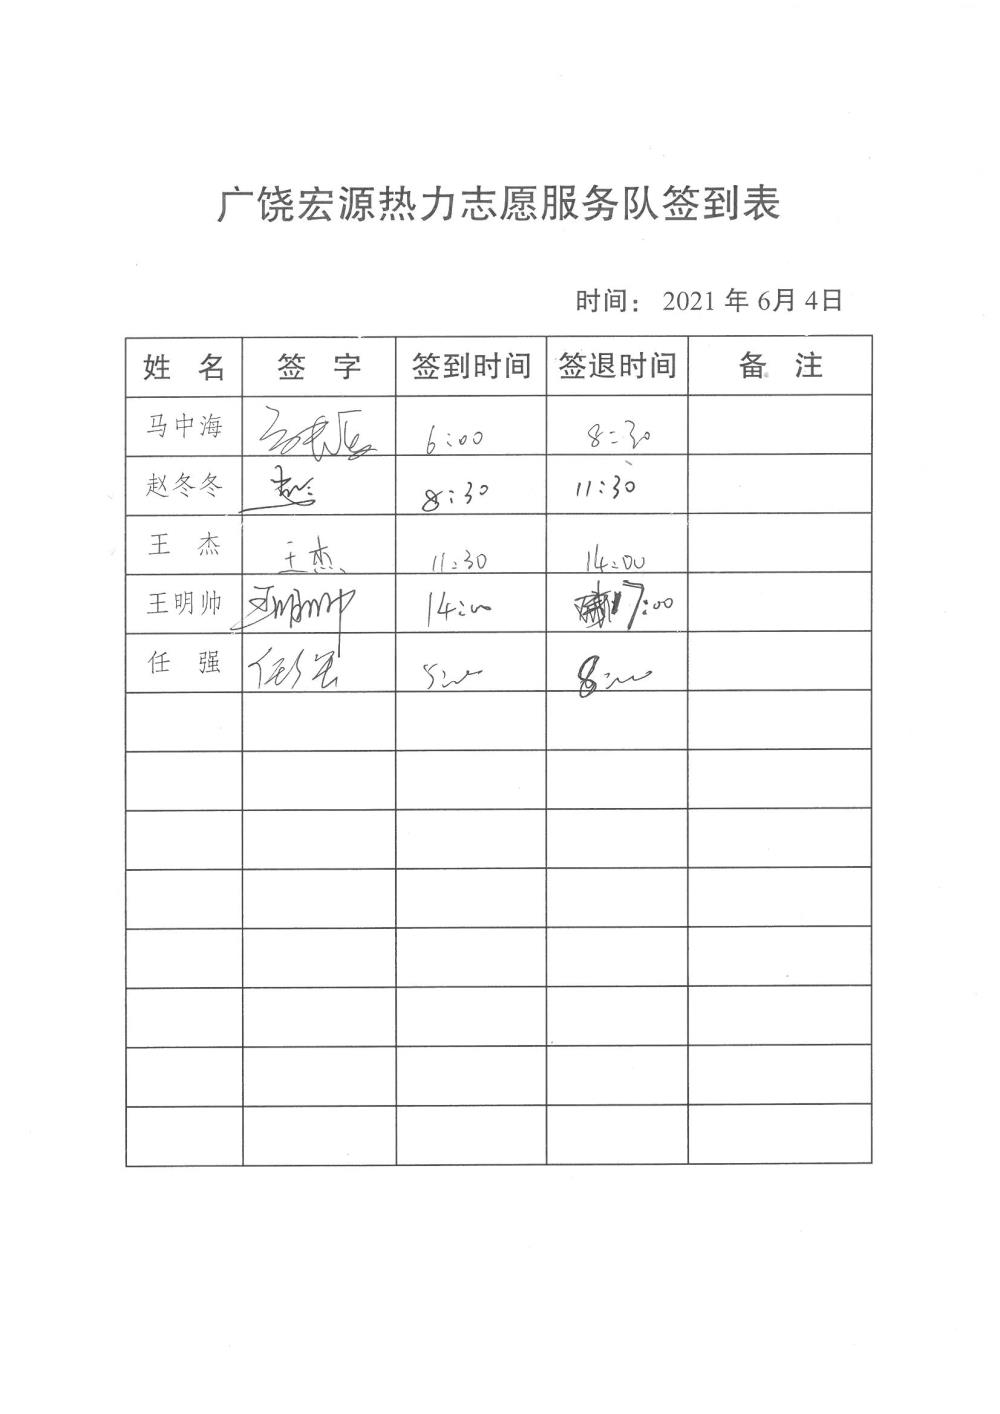 广饶宏源热力志愿服务队签到表
时间： 2021 年 6月 4日
姓 名 签 字 签到时间 签退时间 备 注
马中海 6:00 8:30
赵冬冬 8:30 11:30
王 杰 王杰 11:30 14:00
王明帅 王明帅 14:00 17:00
任 强 任强 5:00 8:00